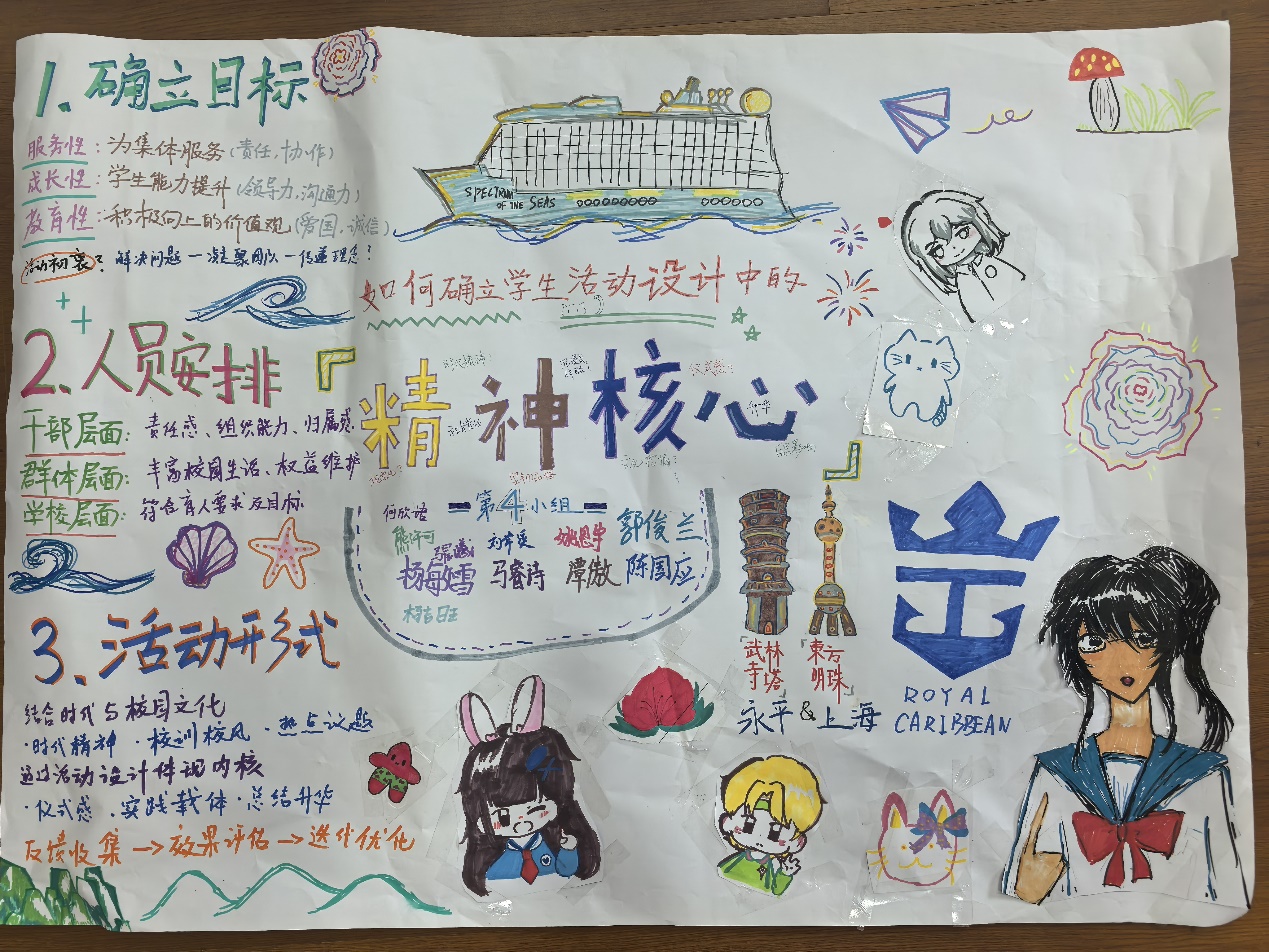 1.确立目标
服务性:为集体服务(责任,协作)
成长性:学生能力提升(领导力,沟通力)
教育性:积极向上的价值观(爱国,诚信)
活动初衷? 解决问题—凝聚团队—传递理念?
2.人员安排
干部层面:责任感、组织能力、归属感
群体层面:丰富校园生活、权益维护
学校层面:符合育人要求及目标
3.活动形式
结合时代与校园文化
·时代精神·校训校风·热点议题
通过活动设计体现内核
·仪式感·实践载体·总结升华
反馈收集→效果评估→迭代优化
SPECTRUM
OF THE SEAS
如何确立学生活动设计中的
「精神核心」
第4小组
何欣语
郭俊兰
马睿诗 谭傲 陈国应
武林
寺塔
東方
明珠
永平&上海
ROYAL
CARIBBEAN